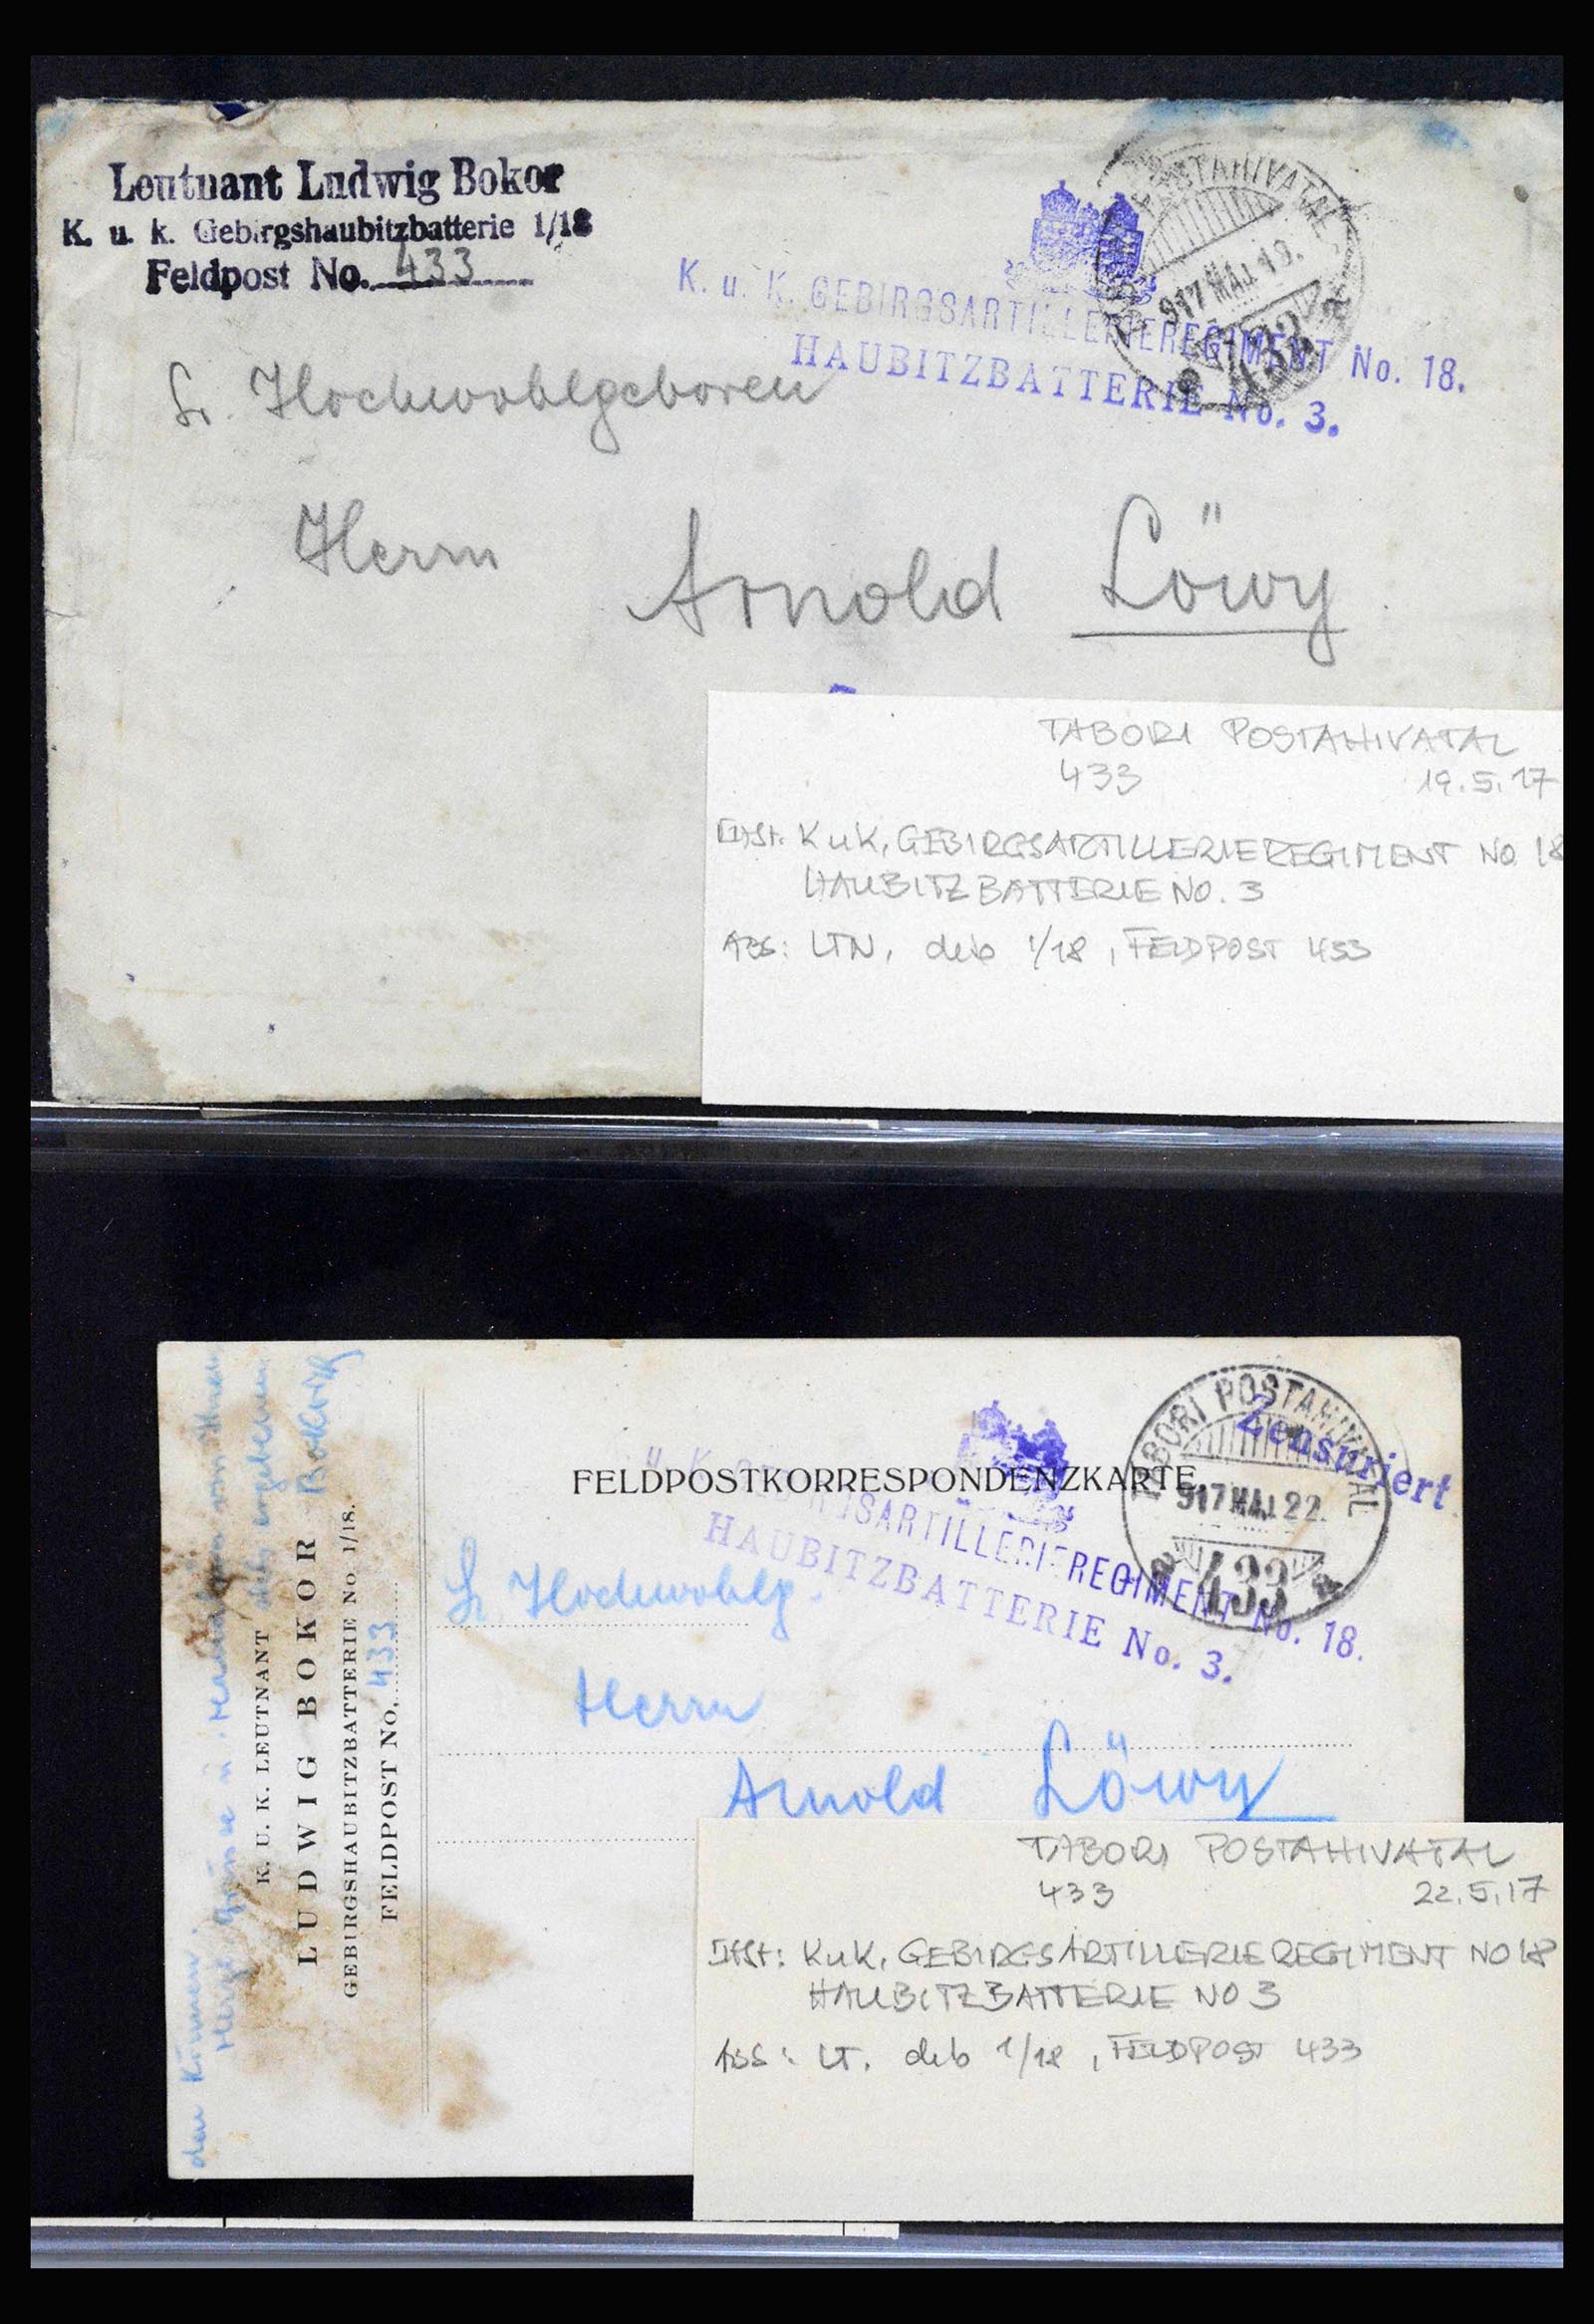 Leutnant Ludwig Bokor
K. u. k. Gebirgshaubitzbatterie 1/18
Feldpost No. 433
POSTAHIVATAL
917 MÁJ. 19.
433
K. u. K. GEBIRGSARTILLERIEREGIMENT No. 18.
HAUBITZBATTERIE No. 3.
Sr. Hochwohlgeboren
Herrn
Arnold Löwy
TABORI POSTAHIVATAL
433 19.5.17
KuK. GEBIRGSARTILLERIEREGIMENT NO 18
HAUBITZBATTERIE NO. 3
ABS: LTN. deb 1/18, FELDPOST 433
TÁBORI POSTAHIVATAL
917 MÁJ. 22.
433
Zensuriert
FELDPOSTKORRESPONDENZKARTE
K. GEBIRGSARTILLERIEREGIMENT No. 18.
HAUBITZBATTERIE No. 3.
Sr. Hochwohlg.
Herrn
Arnold Löwy
den können.
K. U. K. LEUTNANT
LUDWIG BOKOR
GEBIRGSHAUBITZBATTERIE No. 1/18.
FELDPOST No. 433
TABORI POSTAHIVATAL
433 22.5.17
KuK. GEBIRGSARTILLERIEREGIMENT NO 18
HAUBITZBATTERIE NO 3
ABS: LT. deb 1/18, FELDPOST 433